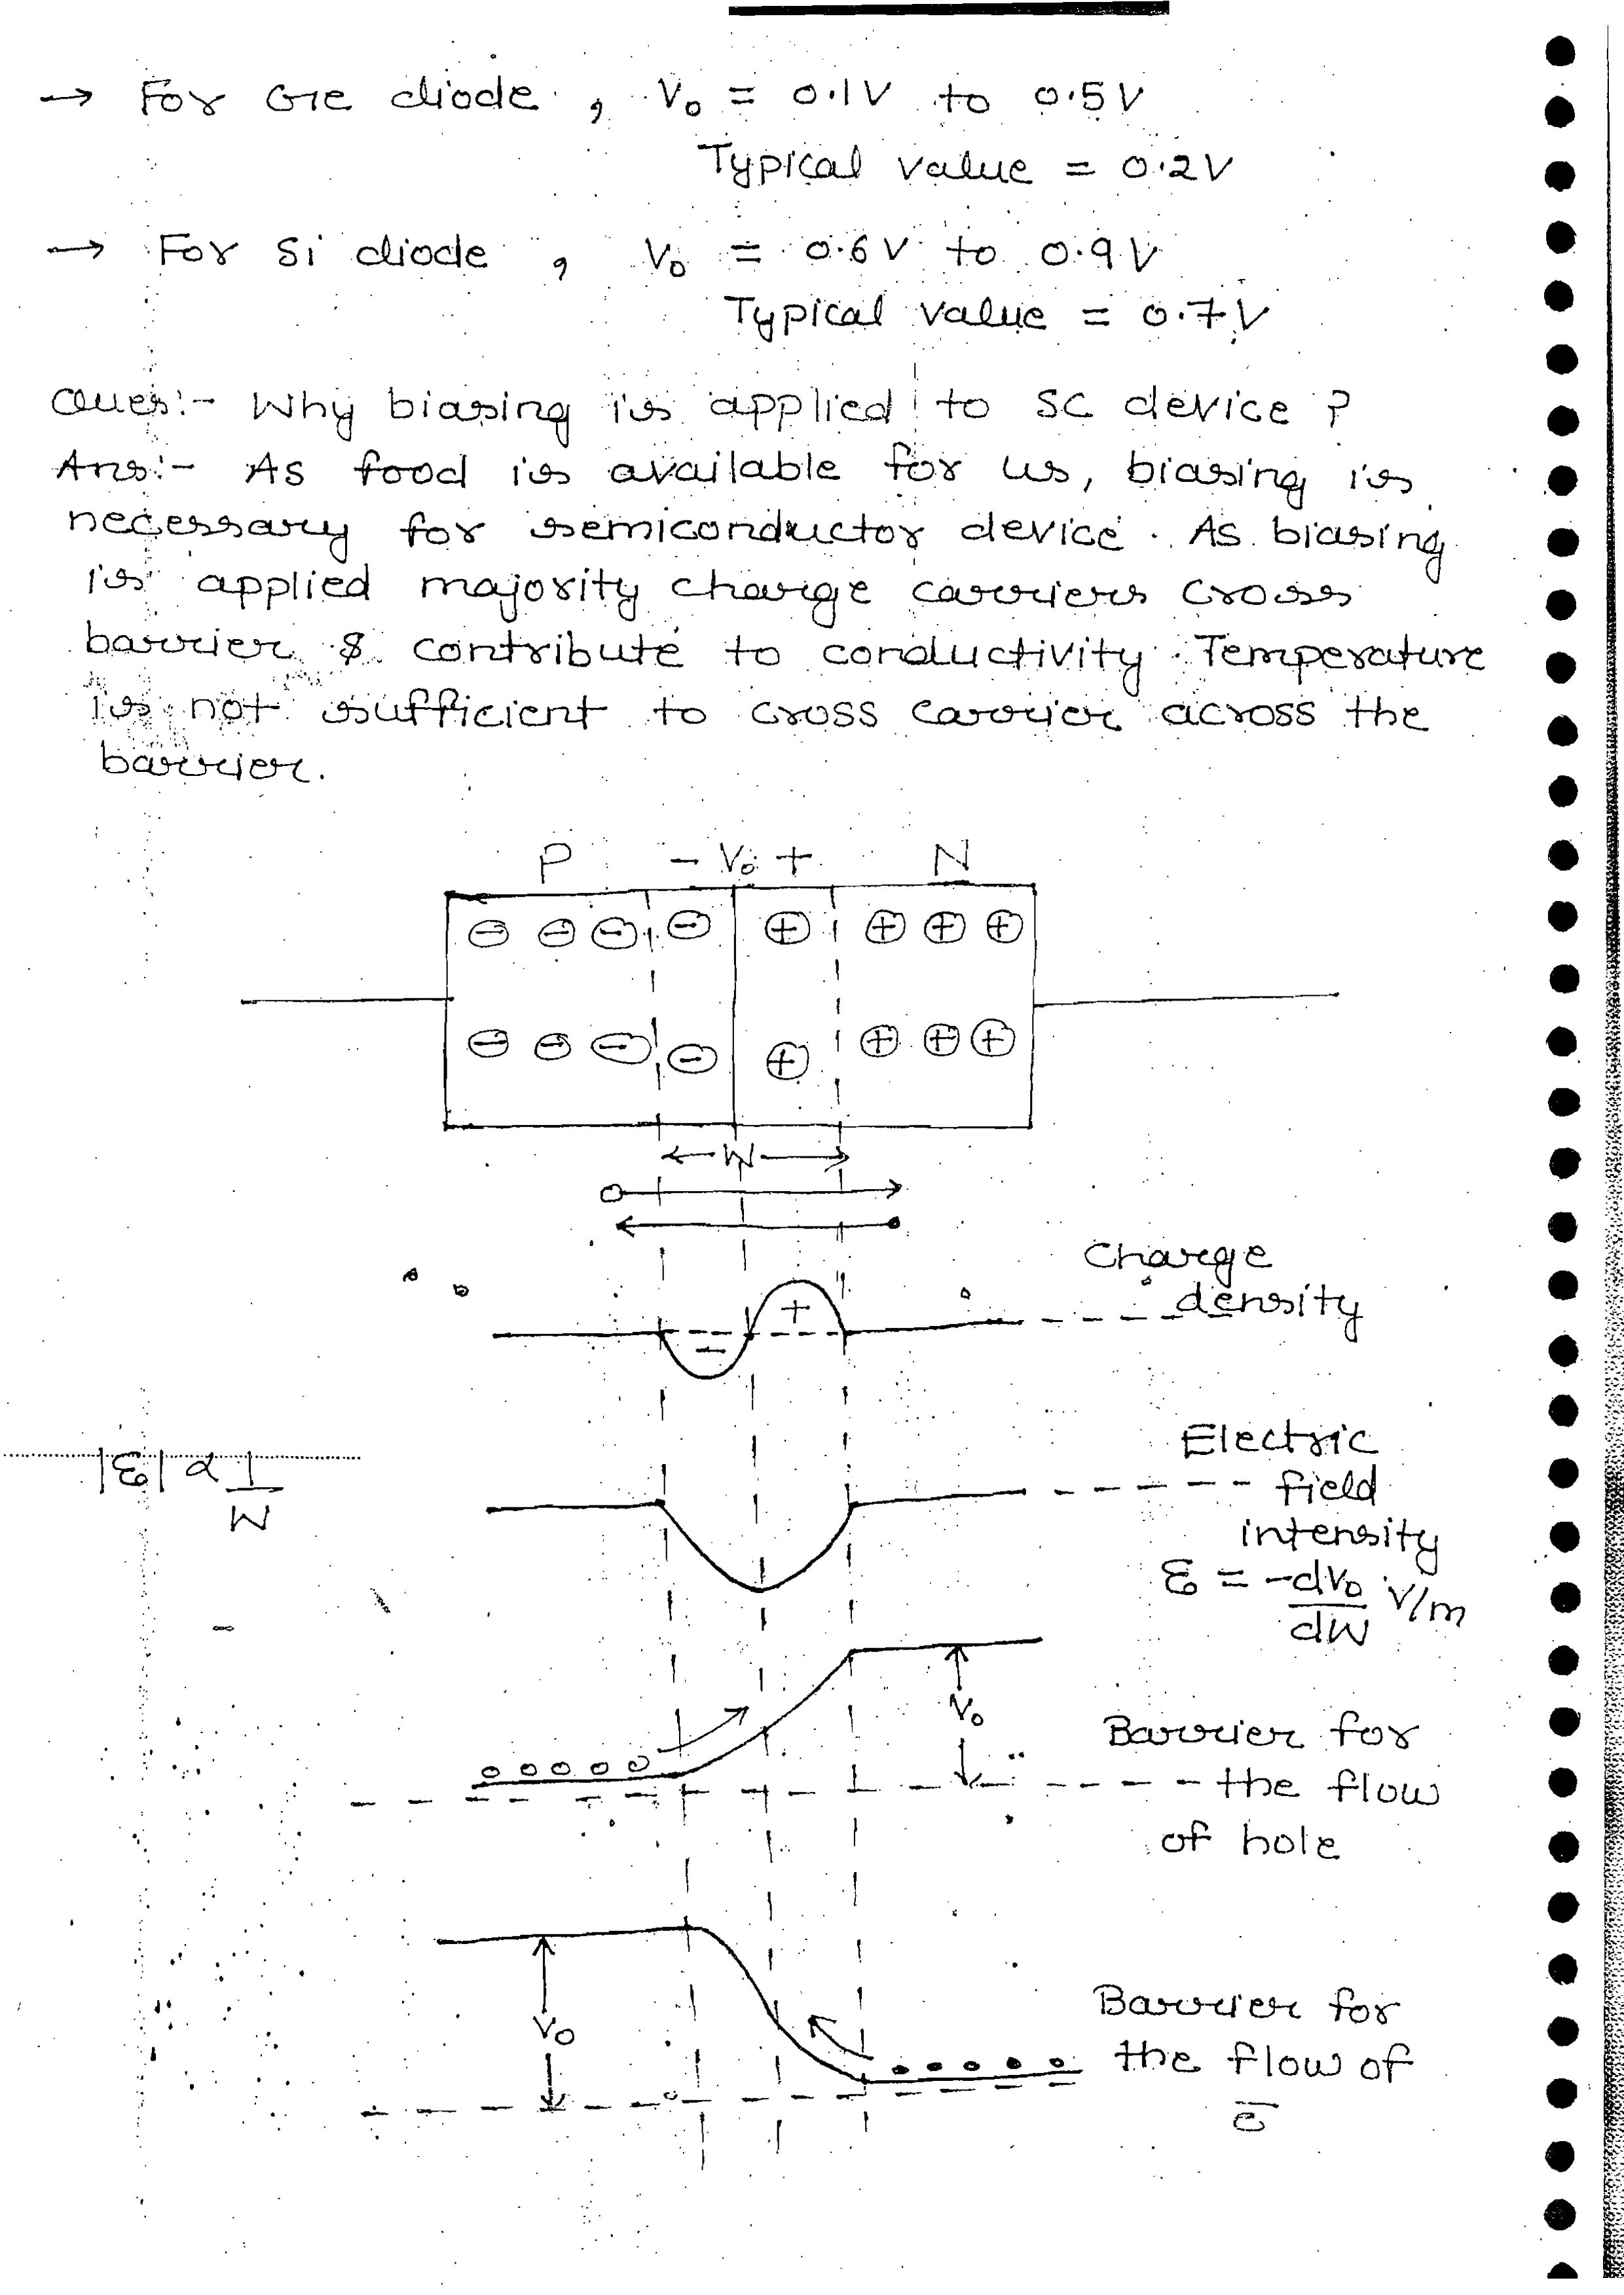 → For Ge diode, V₀ = 0.1V to 0.5V
Typical value = 0.2V
→ For Si diode, V₀ = 0.6V to 0.9V
Typical value = 0.7V
Ques:- Why biasing is applied to SC device ?
Ans:- As food is available for us, biasing is
necessary for semiconductor device. As biasing
is applied majority charge carriers cross
barrier & contribute to conductivity. Temperature
is not sufficient to cross carrier across the
barrier.
P - V₀ + N
⊖ ⊖ ⊖ ⊖ ⊕ ⊕ ⊕ ⊕
⊖ ⊖ ⊖ ⊖ ⊕ ⊕ ⊕ ⊕
←W→
Charge
density
+
-
Electric
field
intensity
ℰ = -dV₀/dW V/m
|ℰ| ∝ 1/W
V₀
Barrier for
the flow
of hole
V₀
Barrier for
the flow of
e̅